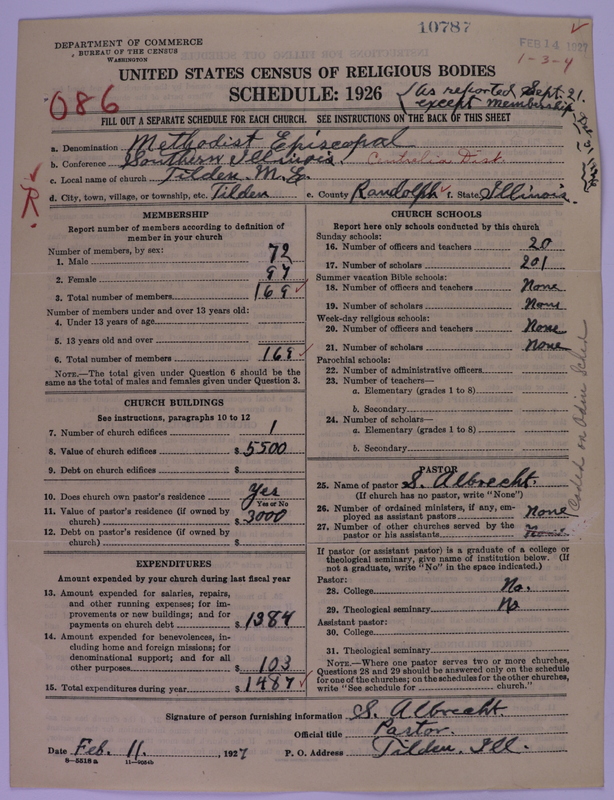 10787
DEPARTMENT OF COMMERCE
BUREAU OF THE CENSUS
WASHINGTON
FEB 14 1927
1-3-4
UNITED STATES CENSUS OF RELIGIOUS BODIES
SCHEDULE: 1926
(as reported Sept. 21.
except membership
086
FILL OUT A SEPARATE SCHEDULE FOR EACH CHURCH. SEE INSTRUCTIONS ON THE BACK OF THIS SHEET
a. Denomination Methodist Episcopal
b. Conference Southern Illinois. Centralia Dist.
c. Local name of church Tilden M.E.
d. City, town, village, or township, etc. Tilden e. County Randolph f. State Illinois.
R.
MEMBERSHIP
Report number of members according to definition of member in your church
Number of members, by sex:
1. Male 72
2. Female 97
3. Total number of members 169
Number of members under and over 13 years old:
4. Under 13 years of age
5. 13 years old and over
6. Total number of members 169
NOTE.—The total given under Question 6 should be
same as the total of males and females given under Question 3.
CHURCH BUILDINGS
See instructions, paragraphs 10 to 12
7. Number of church edifices 1
8. Value of church edifices $5500
9. Debt on church edifices $
10. Does church own pastor's residence Yes
Yes or No
11. Value of pastor's residence (if owned by
church) $3000
12. Debt on pastor's residence (if owned by
church) $
EXPENDITURES
Amount expended by your church during last fiscal year
13. Amount expended for salaries, repairs,
and other running expenses; for im-
provements or new buildings; and for
payments on church debt $1384
14. Amount expended for benevolences, in-
cluding home and foreign missions; for
denominational support; and for all
other purposes $103
15. Total expenditures during year $1487
CHURCH SCHOOLS
Report here only schools conducted by this church
Sunday schools:
16. Number of officers and teachers 20
17. Number of scholars 201
Summer vacation Bible schools:
18. Number of officers and teachers None
19. Number of scholars None
Week-day religious schools:
20. Number of officers and teachers None
21. Number of scholars None
Parochial schools:
22. Number of administrative officers
23. Number of teachers—
a. Elementary (grades 1 to 8)
b. Secondary
24. Number of scholars—
a. Elementary (grades 1 to 8)
b. Secondary
PASTOR
25. Name of pastor S. Albrecht.
(If church has no pastor, write "None")
26. Number of ordained ministers, if any, em-
ployed as assistant pastors None
27. Number of other churches served by the
pastor or his assistants None
If pastor (or assistant pastor) is a graduate of a college or
theological seminary, give name of institution below. (If
not a graduate, write "No" in the space indicated.)
Pastor:
28. College No.
29. Theological seminary No
Assistant pastor:
30. College
31. Theological seminary
NOTE.—Where one pastor serves two or more churches,
Questions 28 and 29 should be answered only on the schedule
for one of the churches; on the schedules for the other churches,
write "See schedule for church."
Signature of person furnishing information S. Albrecht.
Official title Pastor.
Date Feb. 11, 1927 P. O. Address Tilden, Ill.
8—5518 a 11—9054b